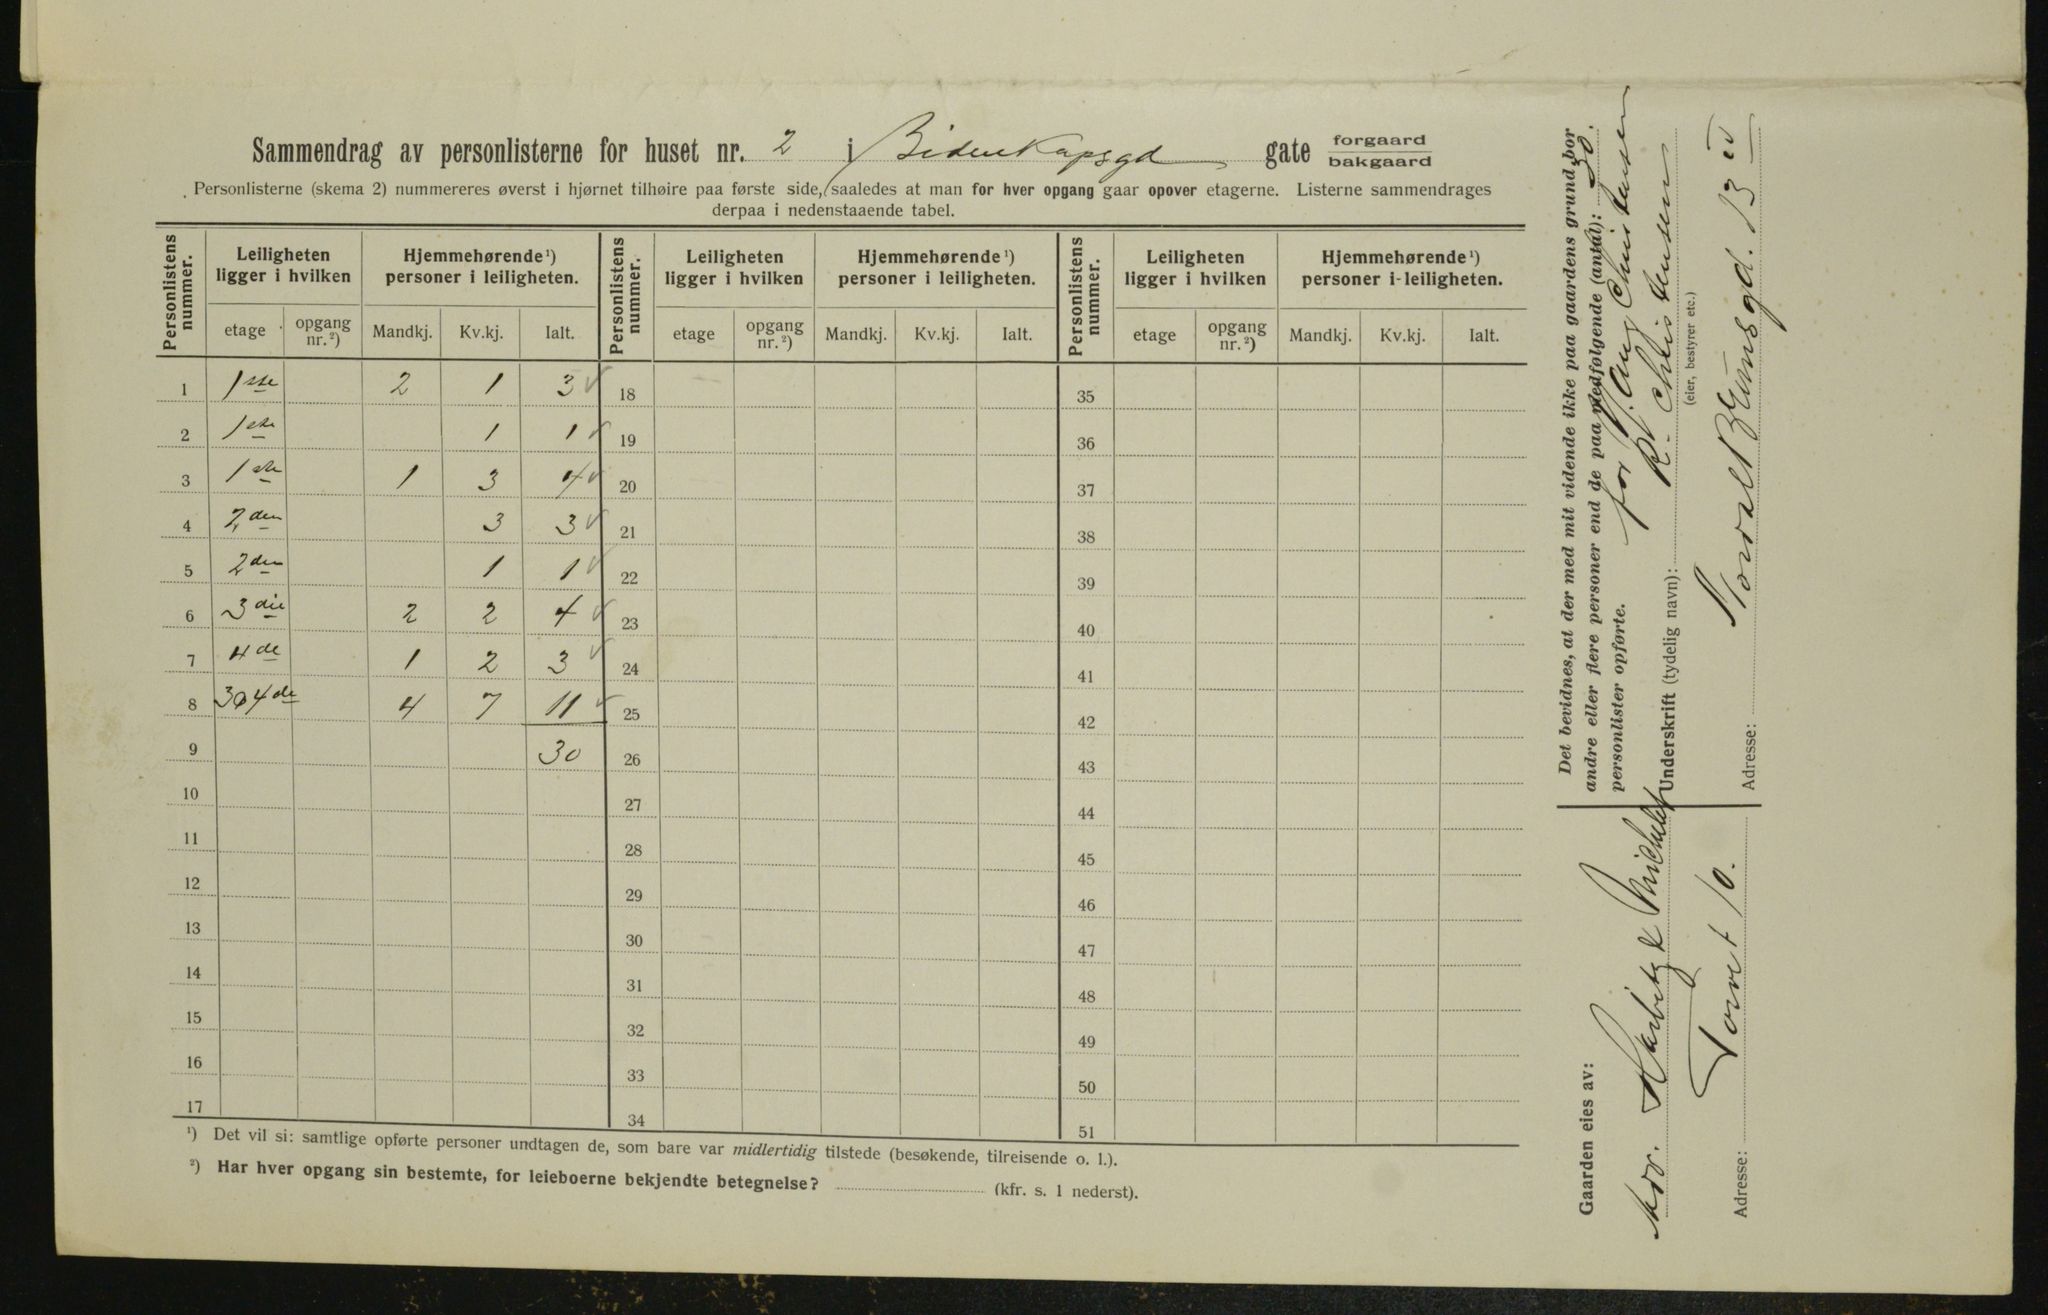 Sammendrag av personlisterne for huset nr. 2 i Bidenkapsgd gate forgaard
bakgaard
Personlisterne (skema 2) nummereres øverst i hjørnet tilhøire paa første side, saaledes at man for hver opgang gaar opover etagerne. Listerne sammendrages
derpaa i nedenstaaende tabel.
Personlistens nummer. Leiligheten ligger i hvilken Hjemmehørende ¹) personer i leiligheten. Personlistens nummer. Leiligheten ligger i hvilken Hjemmehørende ¹) personer i leiligheten. Personlistens nummer. Leiligheten ligger i hvilken Hjemmehørende ¹) personer i leiligheten.
etage opgang nr. ²) Mandkj. Kv.kj. Ialt. etage opgang nr. ²) Mandkj. Kv.kj. Ialt. etage opgang nr. ²) Mandkj. Kv.kj. Ialt.
1 1ste 2 1 3 18 35
2 1ste 1 1 19 36
3 1ste 1 3 4 20 37
4 2den 3 3 21 38
5 2den 1 1 22 39
6 3die 2 2 4 23 40
7 4de 1 2 3 24 41
8 3o4de 4 7 11 25 42
9 30 26 43
10 27 44
11 28 45
12 29 46
13 30 47
14 31 48
15 32 49
16 33 50
17 34 51
¹) Det vil si: samtlige opførte personer undtagen de, som bare var midlertidig tilstede (besøkende, tilreisende o. l.).
²) Har hver opgang sin bestemte, for leieboerne bekjendte betegnelse? (kfr. s. 1 nederst).
Det bevidnes, at der med mit vidende ikke paa gaardens grund bor
andre eller flere personer end de paa medfølgende (antal): 30.
personlister opførte.
for Aug Christensen
Underskrift (tydelig navn): R. Christensen
(eier, bestyrer etc.)
Adresse: Nordal Brunsgd. 13 IV
Gaarden eies av:
Michelet
Adresse: Torvet 10.